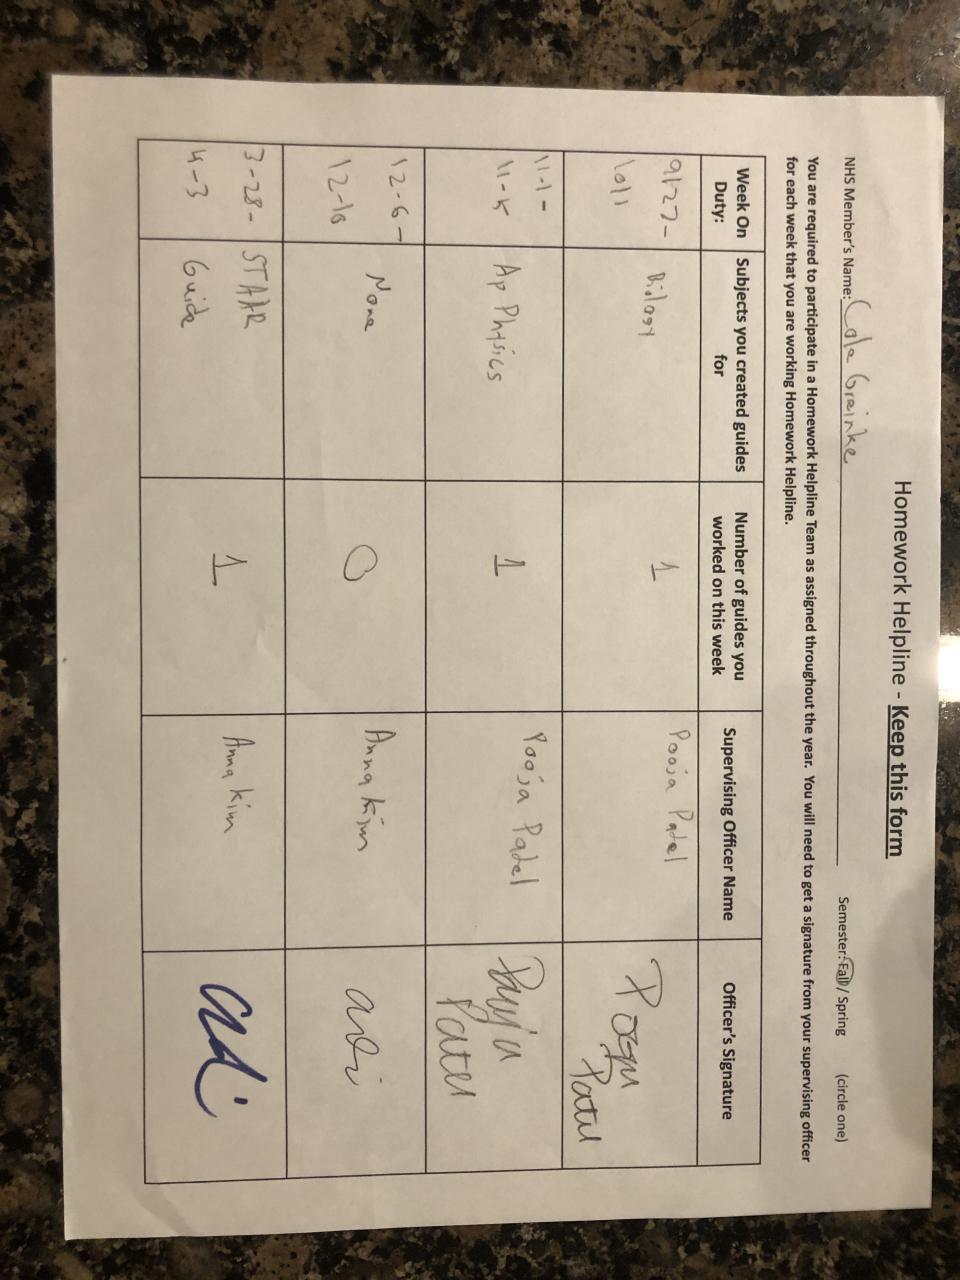 Homework Helpline - Keep this form
NHS Member's Name: Cole Greinke Semester: Fall / Spring (circle one)
You are required to participate in a Homework Helpline Team as assigned throughout the year. You will need to get a signature from your supervising officer
for each week that you are working Homework Helpline.
Week On Duty: Subjects you created guides for Number of guides you worked on this week Supervising Officer Name Officer's Signature
9/27- Biology 1 Pooja Patel Pooja
10/1 Patel
11-1- Ap Physics 1 Pooja Patel Pooja
11-5 Patel
12-6- None 0 Anna Kim
12-10
3-28- STAAR 1 Anna Kim
4-3 Guide